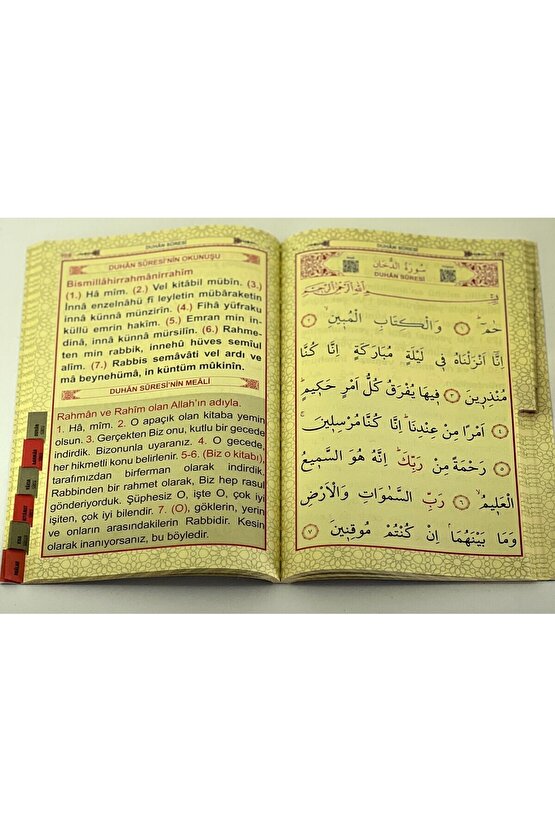 DUHÂN SÛRESİ
DUHÂN SÛRESİ'NİN OKUNUŞU
Bismillâhirrahmânirrahîm
(1.) Hâ mîm. (2.) Vel kitâbil mübîn. (3.)
İnnâ enzelnâhu fî leyletin mübâraketin
innâ künnâ münzirîn. (4.) Fîhâ yüfraku
küllü emrin hakîm. (5.) Emran min in-
dinâ, innâ künnâ mürsilîn. (6.) Rahme-
ten min rabbik, innehû hüves semîul
alîm. (7.) Rabbis semâvâti vel ardı ve
mâ beynehümâ, in küntüm mûkinîn.
DUHÂN SÛRESİ'NİN MEÂLİ
Rahmân ve Rahîm olan Allah'ın adıyla.
1. Hâ, mîm. 2. O apaçık olan kitaba yemin
olsun. 3. Gerçekten Biz onu, kutlu bir gecede
indirdik. Bizonunla uyaranız. 4. O gecede,
her hikmetli konu belirlenir. 5-6. (Biz o kitabı),
tarafımızdan birferman olarak indirdik.
Rabbinden bir rahmet olarak, Biz hep rasul
gönderiyorduk. Şüphesiz O, işte O, çok iyi
işiten, çok iyi bilendir. 7. (O), göklerin, yerin
ve onların arasındakilerin Rabbidir. Kesin
olarak inanıyorsanız, bu böyledir.
DUHÂN SÛRESİ
سُورَةُ الدُّخَانِ
DUHÂN SÛRESİ
بِسْمِ اللّٰهِ الرَّحْمٰنِ الرَّحِيمِ
حٰمٓ ﴿١﴾ وَالْكِتَابِ الْمُبِينِ ﴿٢﴾
اِنَّٓا اَنْزَلْنَاهُ فِى لَيْلَةٍ مُبَارَكَةٍ اِنَّا كُنَّا
مُنْذِرِينَ ﴿٣﴾ فِيهَا يُفْرَقُ كُلُّ اَمْرٍ حَكِيمٍ
﴿٤﴾ اَمْرًا مِنْ عِنْدِنَا اِنَّا كُنَّا مُرْسِلِينَ
﴿٥﴾ رَحْمَةً مِنْ رَبِّكَ اِنَّهُ هُوَ السَّمِيعُ
الْعَلِيمُ ﴿٦﴾ رَبِّ السَّمٰوَاتِ وَالْاَرْضِ
وَمَا بَيْنَهُمَا اِنْ كُنْتُمْ مُوقِنِينَ ﴿٧﴾